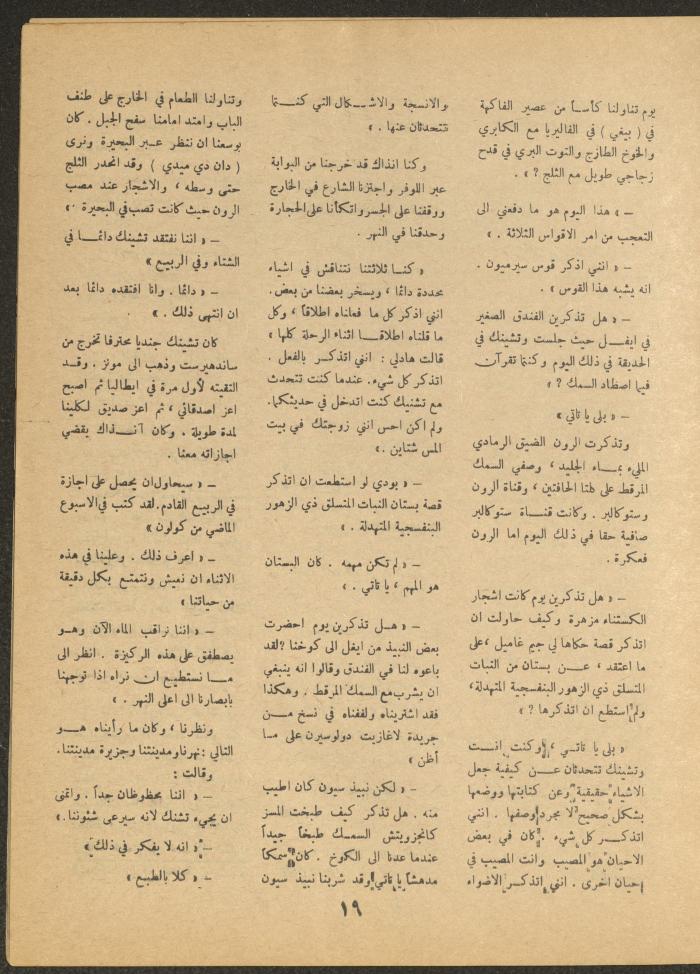 يوم تناولنا كأساً من عصير الفاكهة
في ( بيغي ) في الفاليريا مع الكابري
والخوخ الطازج والتوت البري في قدح
زجاجي طويل مع الثلج ? » .
ــ « هذا اليوم هو ما دفعني الى
التعجب من امر الاقواس الثلاثة . »
ــ « انني اذكر قوس سيرميون .
انه يشبه هذا القوس » .
ــ « هل تذكرين الفندق الصغير
في ايغــل حيث جلست وتشينك في
الحديقة في ذلك اليوم وكنتما تقرآن
فيما اصطاد السمك ? »
ــ « بلى يا تاتي »
وتذكرت الرون الضيق الرمادي
المليء بمــاء الجليد ، وصفي السمك
المرقط على كلتا الحافتين ، وقناة الرون
وستوكالبر . وكانت قنــاة ستوكالبر
صافية حقا في ذلك اليوم اما الرون
فعكرة .
ــ « هل تذكرين يوم كانت اشجار
الكستناء مزهرة وكيف حاولت ان
اتذكر قصة حكاها لي جيم غاميل ،على
ما اعتقد ، عــن بستان من النبات
المتسلق ذي الزهور البنفسجية المتهدلة،
ولم استطع ان اتذكرها ? »
« بلى يا تاتــي ، وكنت انــت
وتشينك تتحدثان عــن كيفية جعل
الاشياء حقيقية وعن كتابتها ووضعها
بشكل صحيح لا مجرد وصفها . انني
اتذكــر كل شيء . كان في بعض
الاحيان هو المصيب وانت المصيب في
احيان اخرى . انني اتذكر الاضواء
والانسجة والاشــكال التي كنــتما
تتحدثان عنها . »
وكنا انذاك قد خرجنا من البوابة
عبر اللوفر واجتزنا الشارع في الخارج
ووقفنا على الجسر واتكأنا على الحجارة
وحدقنا في النهر .
« كنــا ثلاثتنا نتناقش في اشياء
محددة دائما ، ويسخر بعضنا من بعض.
انني اذكر كل ما فعلناه اطلاقاً ، وكل
ما قلناه اطلاقــا اثناء الرحلة كلها »
قالت هادلي : انني اتذكــر بالفعل .
اتذكر كل شيء. عندما كنت تتحدث
مع تشنيك كنت اتدخل في حديثكما.
ولم اكن احس انني زوجتك في بيت
المس شتاين .»
ــ « بودي لو استطعت ان اتذكر
قصة بستان النبات المتسلق ذي الزهور
البنفسجية المتهدلة . »
ــ « لم تكن مهمه . كان البستان
هو المهم ، يا تاتي . »
ــ « هــل تذكرين يوم احضرت
بعض النبيذ من ايغل الى كوخنا ?لقد
باعوه لنا في الفندق وقالوا انه ينبغي
ان يشرب مع السمك المرقط . وهكذا
فقد اشتريناه ولففناه في نسخ مــن
جريدة لاغازيت دولوسيرن على مــا
أظن »
ــ « لكن نبيذ سيون كان اطيب
منه . هل تذكر كيف طبخت المسز
كانجزويتش السمــك طبخاً جيداً
عندما عدنا الى الكوخ . كان سمكاً
مدهشاً يا تاتي وقد شربنا نبيذ سيون
وتناولنا الطعام في الخارج على طنف
الباب وامتد امامنا سفح الجبل . كان
بوسعنا ان ننظر عــبر البحيرة ونرى
( دان دي ميدي ) وقد انحدر الثلج
حتى وسطه ، والاشجار عند مصب
الرون حيث كانت تصب في البحيرة .»
ــ « اننا نفتقد تشينك دائمــا في
الشتاء وفي الربيع »
ــ « دائما . وانا افتقده دائما بعد
ان انتهى ذلك . »
كان تشينك جنديا محترفا تخرج من
ساندهيرست وذهب الى مونز . وقــد
التقيته لأول مرة في ايطاليا ثم اصبح
اعز اصدقائي ، ثم اعز صديق لــكلينا
لمدة طويلة . وكان آنــذاك يقضي
اجازاته معنا .
ــ « سيحاول ان يحصل على اجازة
في الربيع القادم.لقد كتب في الاسبوع
الماضي من كولون »
ــ « اعرف ذلك . وعلينا في هذه
الاثناء ان نعيش ونتمتــع بكل دقيقة
من حياتنا »
ــ « اننا نراقب الماء الآن وهــو
يصطفق على هذه الركيزة . انظر الى
مــا نستطيــع ان نراه اذا توجهنا
بابصارنا الى اعلى النهر . »
ونظرنا ، وكان ما رأيناه هــو
التالي :نهرنا ومدينتنا وجزيرة مدينتنا.
وقالت :
ــ « اننا محظوظان جداً . واتمنى
ان يجيء تشنك لانه سيرعى شئوننا.»
ــ « انه لا يفكر في ذلك »
ــ « كلا بالطبع »
١٩